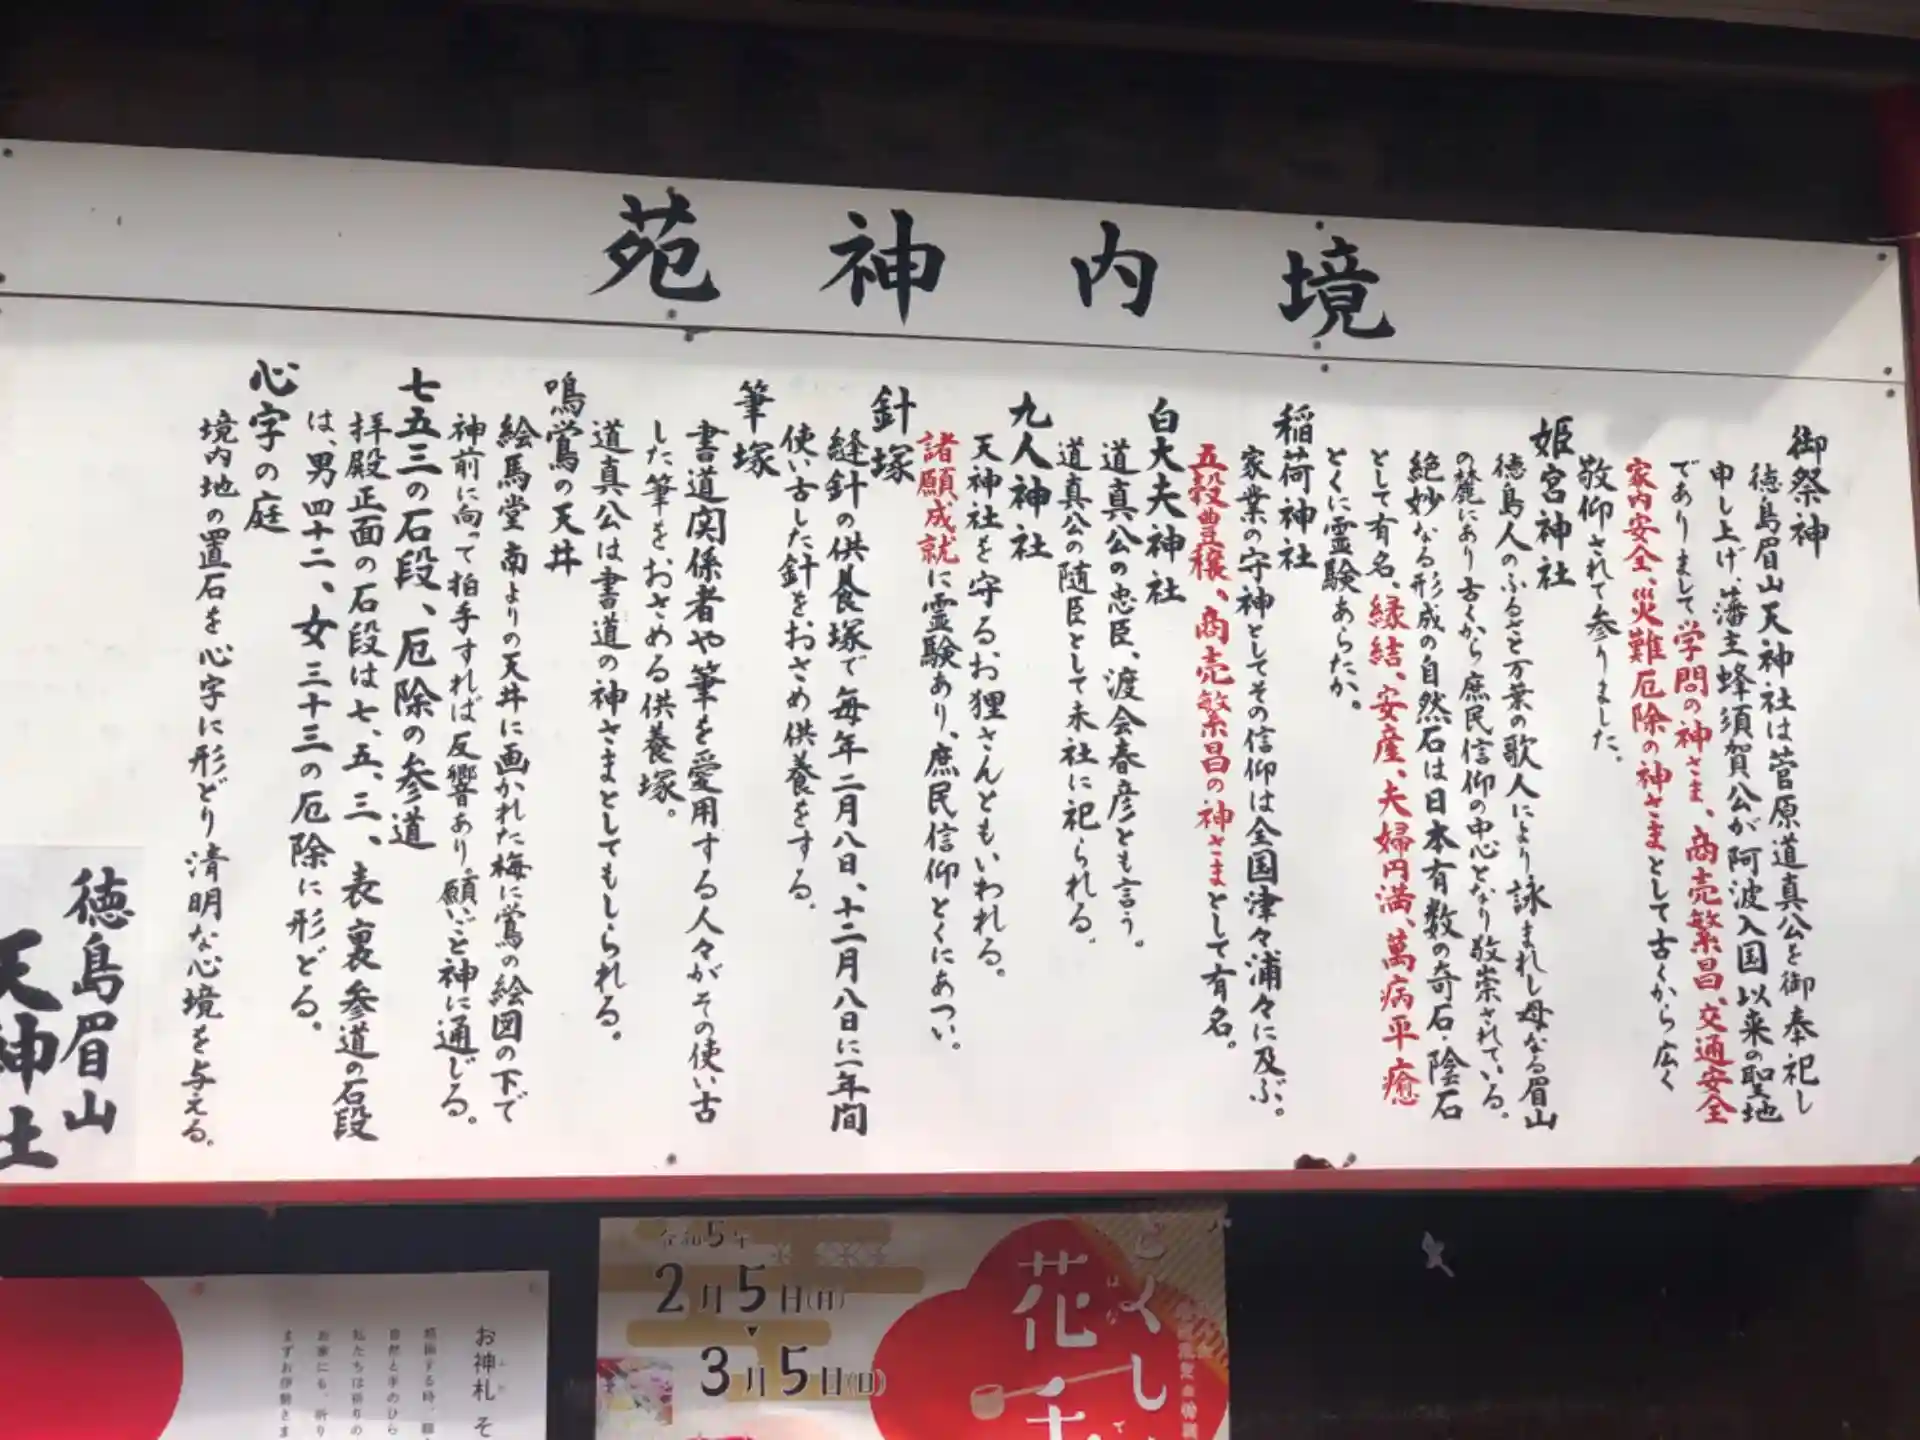 境内神苑
御祭神
徳島眉山天神社は菅原道真公を御奉祀し
申し上げ、藩主蜂須賀公が阿波入国以来の聖地
でありまして学問の神さま、商売繁昌、交通安全
家内安全、災難厄除の神さまとして古くから広く
敬仰されて参りました。
姫宮神社
徳島人のふるさと万葉の歌人により詠まれし母なる眉山
の麓にあり古くから庶民信仰の中心となり敬崇されている。
絶妙なる形成の自然石は日本有数の奇石・陰石
として有名、縁結、安産、夫婦円満、萬病平癒
とくに霊験あらたか。
稲荷神社
家業の守神としてその信仰は全国津々浦々に及ぶ。
五穀豊穣、商売繁昌の神さまとして有名。
白大夫神社
道真公の忠臣、渡会春彦とも言う。
道真公の随臣として末社に祀られる。
九人神社
天神社を守るお狸さんともいわれる。
諸願成就に霊験あり、庶民信仰とくにあつい。
針塚
縫針の供養塚で毎年二月八日、十二月八日に一年間
使い古した針をおさめ供養をする。
筆塚
書道関係者や筆を愛用する人々がその使い古
した筆をおさめる供養塚。
道真公は書道の神さまとしてもしられる。
鳴鴬の天井
絵馬堂南よりの天井に画かれた梅に鴬の絵図の下で
神前に向って拍手すれば反響あり、願いごと神に通じる。
七五三の石段、厄除の参道
拝殿正面の石段は七、五、三、表裏参道の石段
は、男四十二、女三十三の厄除に形どる。
心字の庭
境内地の置石を心字に形どり清明な心境を与える。
徳島眉山
天神社
令和5年
2月5日(日)
3月5日(日)
花手
お神札 そ